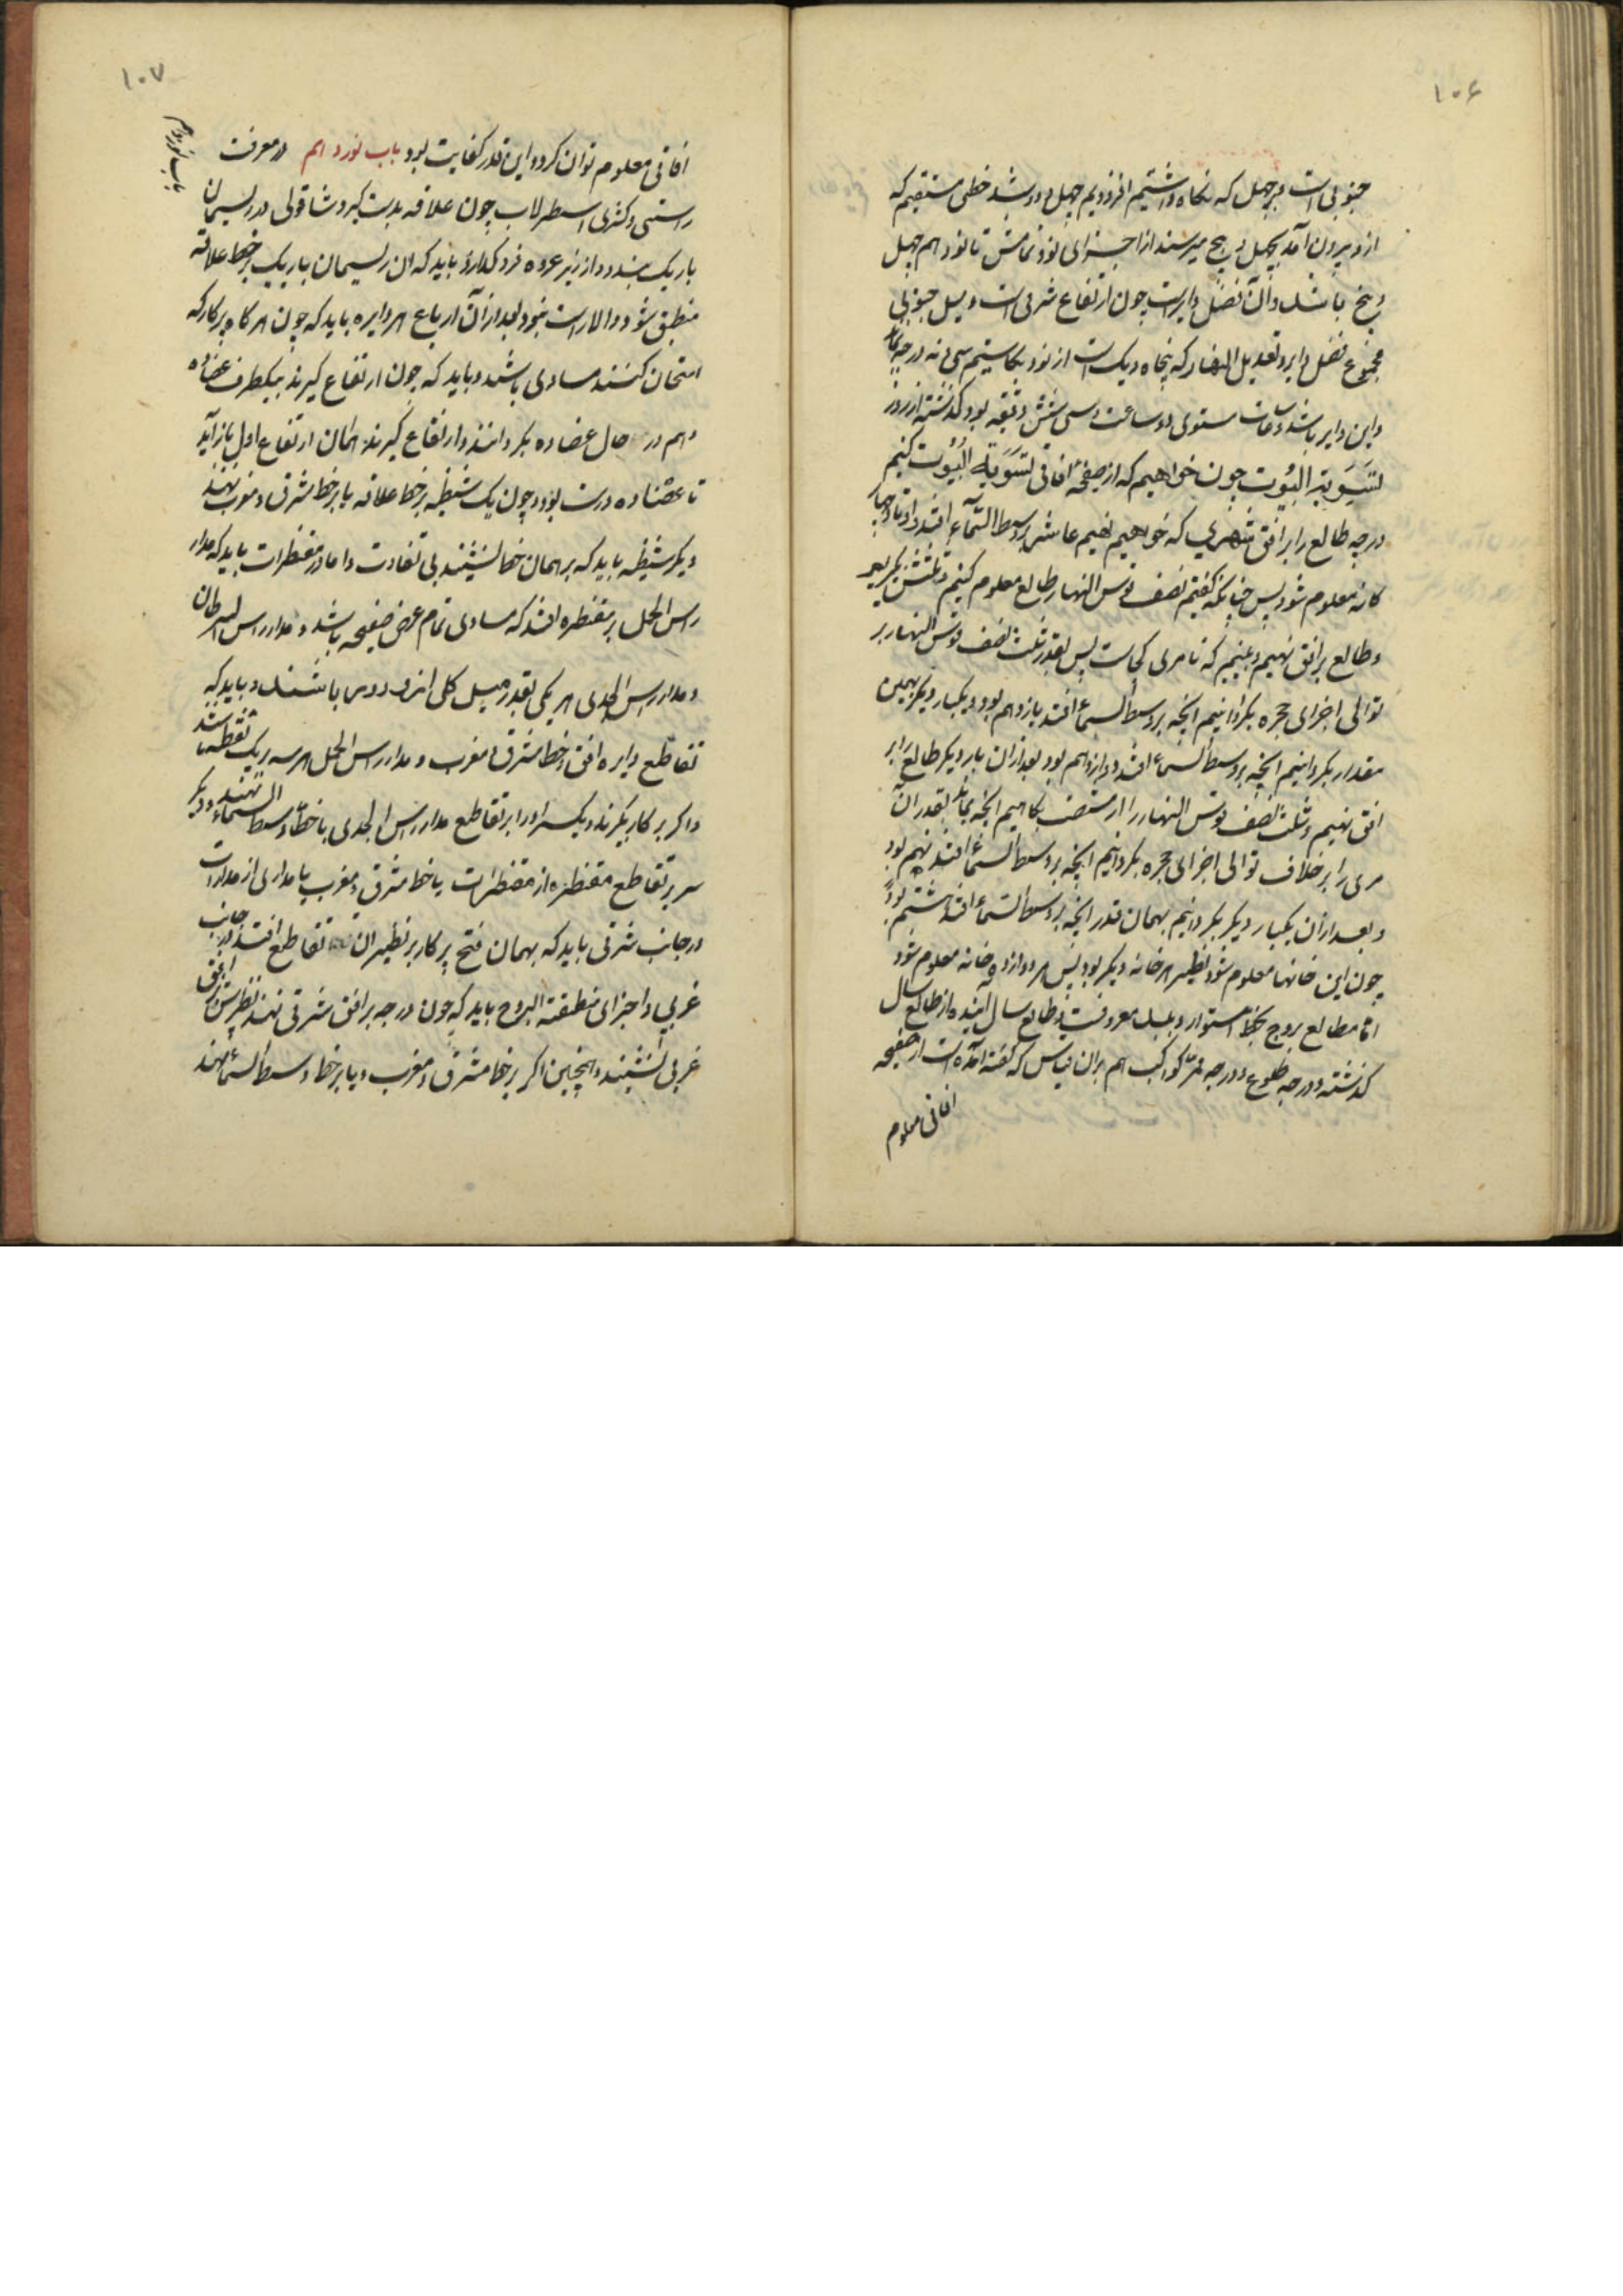 ۱۰۶
جنوبی است و بر چهل که نگاه داشتیم افزودیم چهل و دو شد خطی مستقیم که
از و بیرون آمد بچهل و پنج میرسند از اجزای نود و تمامش تا نود هم چهل
و پنج باشد و آن فضل دایرست چون ارتفاع شرقی است و میل جنوبی
مجموع فضل دایر و تعدیل النهار که پنجاه و یک است از نود بکاستیم سی و نه درجه بماند
و این دایر باشد و ساعات مستوی دو ساعت و سی و شش دقیقه بود گذشته از روز
تسویة البیوت چون خواهیم که از صفحهٔ افاقی تسویة البیوت کنیم
درجه طالع را بر افق شهری که خواهیم نهیم عاشر بر وسط السماء افتد و اوتاد چهار
کانه معلوم شود پس چنانکه گفتم نصف قوس النهار طالع معلوم کنیم و ثلثش بگیریم
و طالع بر افق نهیم و بینیم که تا مری کجاست پس بقدر ثلث نصف قوس النهار بر
توالی اجزای حجره بگردانیم انچه بر وسط السماء افتد یازدهم بود و یکبار دیگر بهمین
مقدار بگردانیم انچه بر وسط السماء افتد دوازدهم بود بعد از ان بار دیگر طالع را بر
افق نهیم و ثلث نصف قوس النهار را از شصت بکاهیم انچه بماند بقدر آن
مری را بر خلاف توالی اجزای حجره بگردانیم انچه بر وسط السماء افتد نهم بود
و بعد از آن یکبار دیگر بگردانیم بهمان قدر انچه بر وسط السماء افتد هشتم بود
چون این خانها معلوم شود نظیر هر خانه دیگر بود پس هر دوازده خانه معلوم شود
اما مطالع بروج بخط استوا و ببلد معروفست و طالع سال اینده از طالع سال
گذشته و درجه طلوع و درجه ممر کواکب هم بران قیاس که گفته آمده است از صفحه
افاقی معلوم
۱۰۷
افاقی معلوم توان کرد و این قدر کفایت بود باب نوزدهم در معرفت
باب نوزدهم
راستی و کژی اسطرلاب چون علاقه بدست گیرد و شاقولی در ریسمان
باریک بندد و از زیر عروه فرو گذارد باید که ان ریسمان باریک بر خط علاقه
منطبق شود و والا راست نبود بعد از آن ارباع هر دایره باید که چون هر گاه بپرکار که
امتحان کنند مساوی باشد و باید که چون ارتفاع گیرند بیکطرف عضاده
و هم در حال عضاده بگردانند و ارتفاع گیرند همان ارتفاع اول باز آید
تا عضاده درست بود و چون یک شظیه بر خط علاقه یا بر خط مشرق و مغرب نهند
دیگر شظیه باید که بر همان خط نشیند بی تفاوت و اما در مقنطرات باید که مدار
راس الحمل بر مقنطره افتد که مساوی تمام عرض صفیحه باشد و مدار راس السرطان
و مدار راس الجدی هر یکی بقدر میل کلی ازو دور باشند و باید که
تقاطع دایره افق و خط مشرق و مغرب و مدار راس الحمل هر سه بر یک نقطه باشد
و اگر پرکار بگیرند و یکسر او را بر تقاطع مدار راس الجدی با خط وسط السماء نهند و دیگر
سر بر تقاطع مقنطره از مقنطرات یا خط مشرق و مغرب یا مداری از مدارات
در جانب شرقی باید که بهمان فتح پرکار بر نظیر ان تقاطع افتد در جانب
غربی و اجزای منطقة البروج باید که چون درجه بر افق شرقی نهند نظیرش بر افق
غربی نشیند و همچنین اگر بر خط مشرق و مغرب و یا بر خط وسط السماء نهند